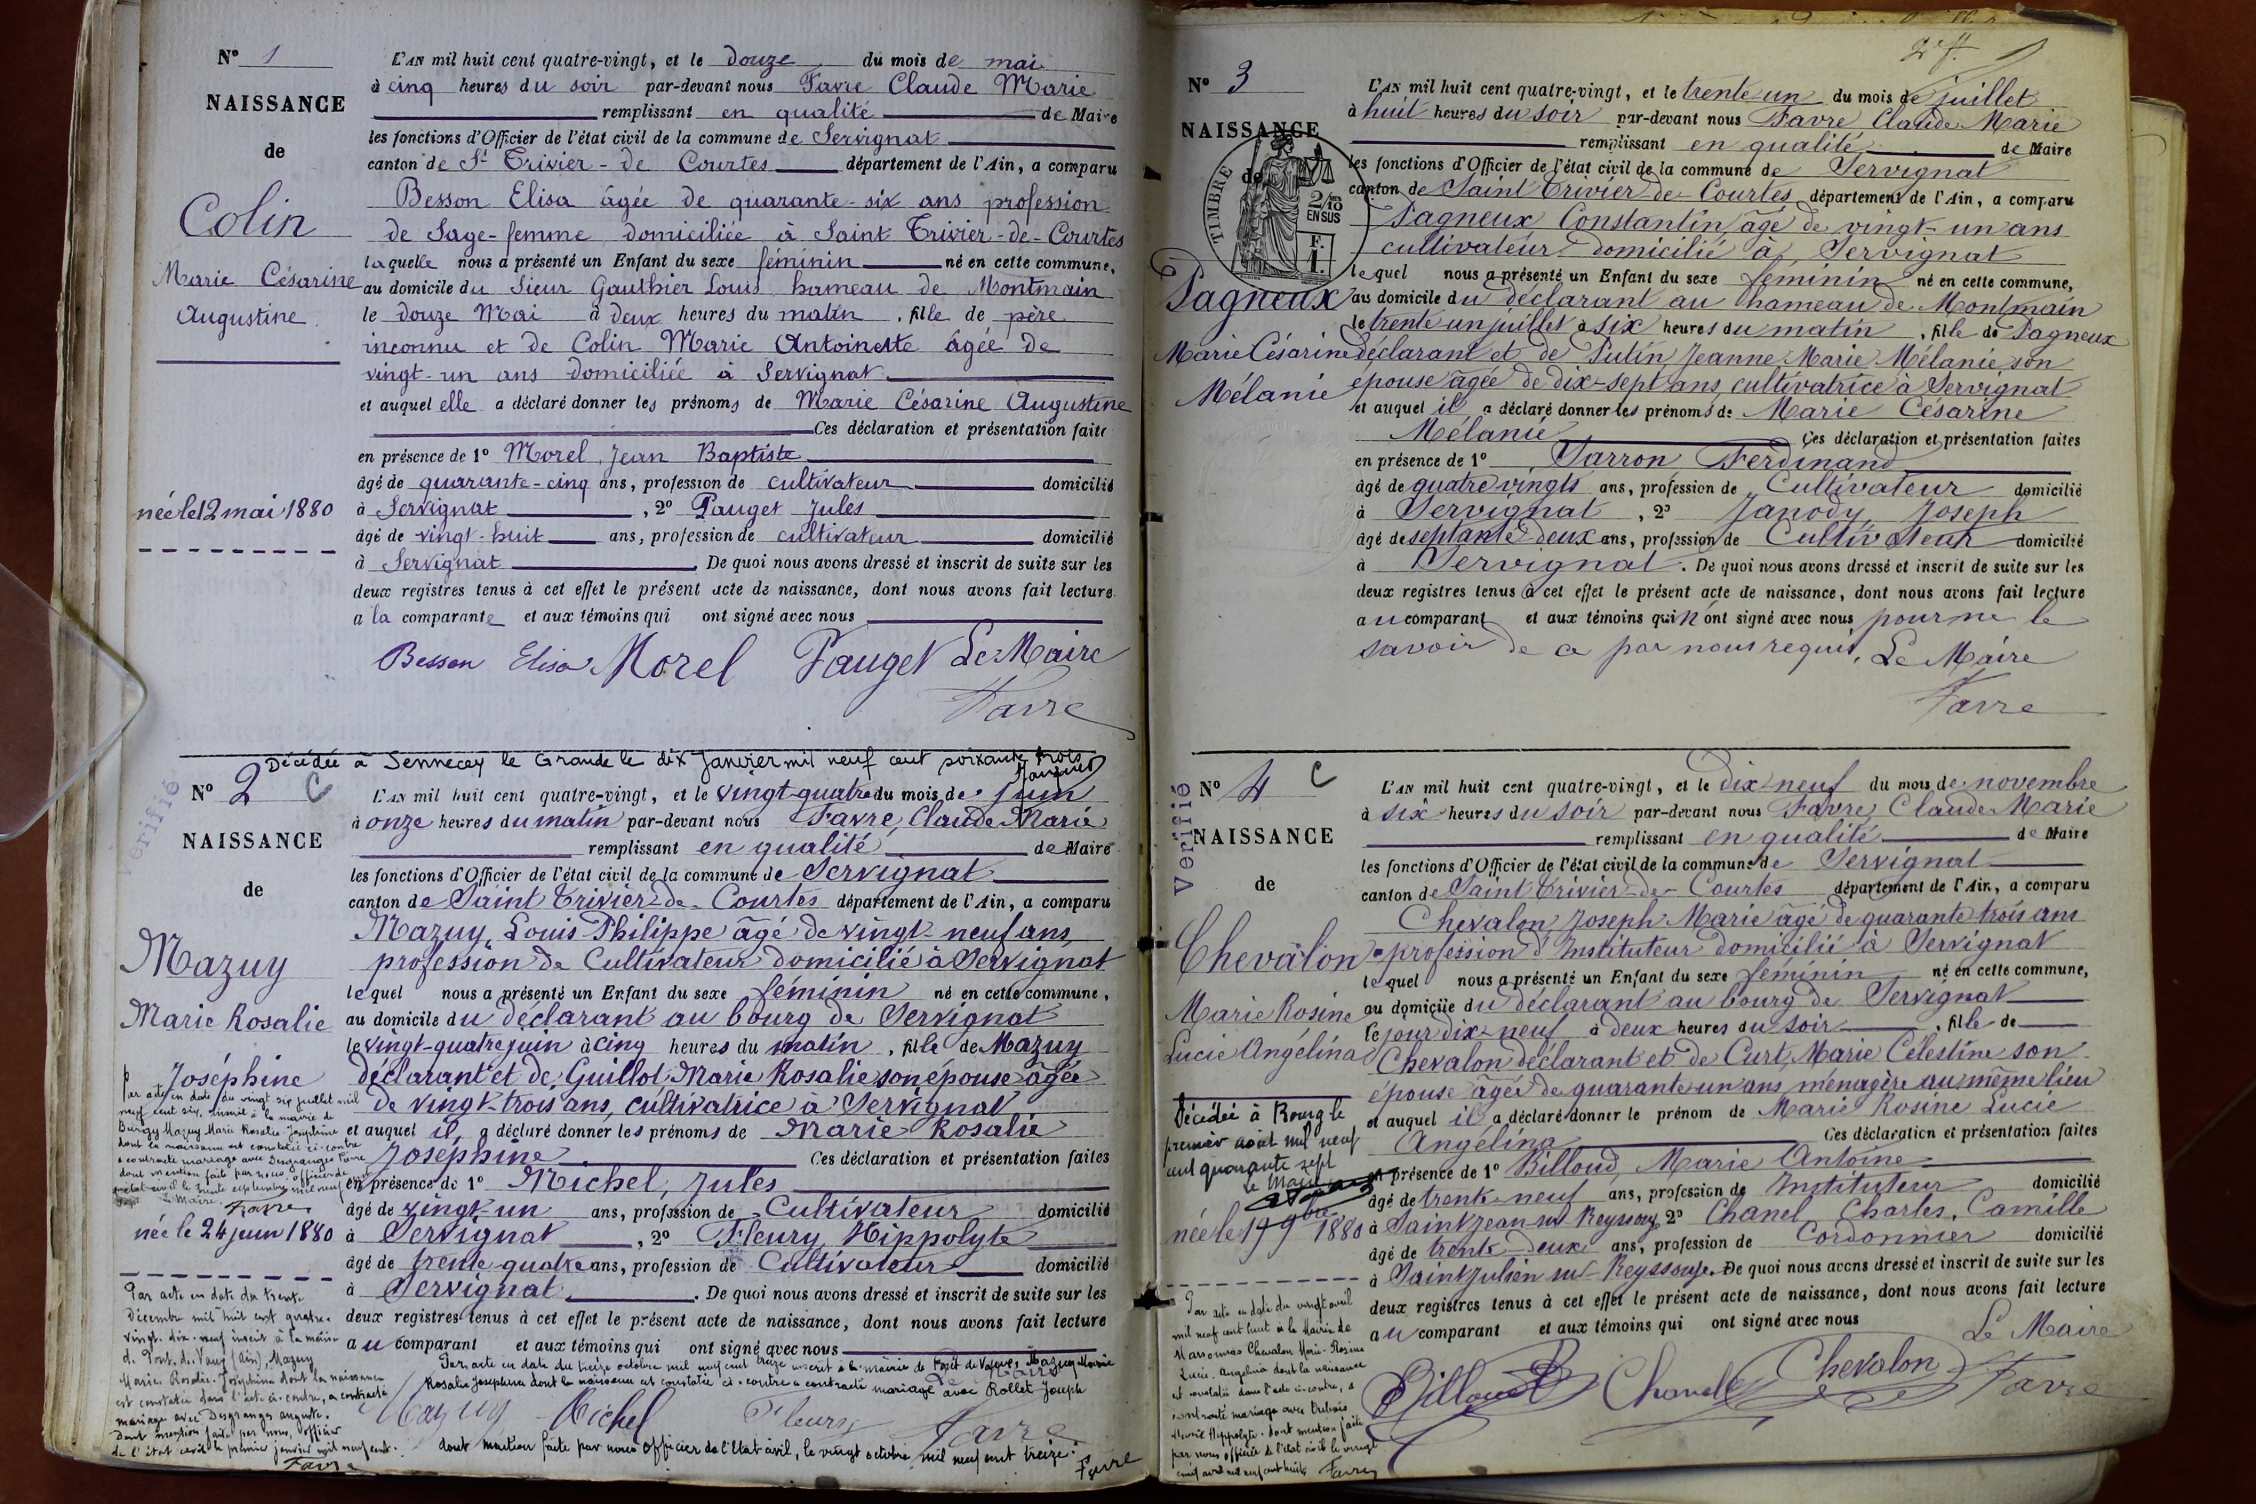 Nº 1
NAISSANCE
de
Colin
Marie Césarine
Augustine
née le 12 mai 1880
L'AN mil huit cent quatre-vingt, et le douze du mois de mai
à cinq heures du soir par-devant nous Favre Claude Marie
remplissant en qualité de Maire
les fonctions d'Officier de l'état civil de la commune de Servignat
canton de St Trivier-de Courtes département de l'Ain, a comparu
Besson Elisa âgée de quarante-six ans profession
de Sage-femme domiciliée à Saint Trivier-de-Courtes
laquelle nous a présenté un Enfant du sexe féminin né en cette commune,
au domicile du Sieur Gauthier Louis hameau de Montmain
le douze Mai à deux heures du matin, fille de père
inconnu et de Colin Marie Antoinette âgée de
vingt-un ans domiciliée à Servignat
et auquel elle a déclaré donner les prénoms de Marie Césarine Augustine
Ces déclaration et présentation faite
en présence de 1º Morel Jean Baptiste
âgé de quarante-cinq ans, profession de cultivateur domicilié
à Servignat, 2º Pauget Jules
âgé de vingt-huit ans, profession de cultivateur domicilié
à Servignat. De quoi nous avons dressé et inscrit de suite sur les
deux registres tenus à cet effet le présent acte de naissance, dont nous avons fait lecture
a la comparante et aux témoins qui ont signé avec nous
Besson Elisa Morel Pauget Le Maire
Favre
Décédée à Sennecey le Grand le dix Janvier mil neuf cent soixante trois
Nº 2 C
Vérifié
NAISSANCE
de
Mazuy
Marie Rosalie
Joséphine
Par acte en date du vingt six juillet mil
neuf cent six, inscrit à la mairie de
Mazuy Marie Rosalie Joséphine
dont la naissance est constatée ci-contre
a contracté mariage avec Desgranges
dont mention faite par nous officier de
l'état civil le trente septembre mil neuf cent
Le Maire
Favre
née le 24 juin 1880
Par acte en date du trente
décembre mil huit cent quatre-
vingt-dix-neuf inscrit à la mairie
de Pont-de-Vaux (Ain), Mazuy
Marie-Rosalie-Joséphine dont la naissance
est constatée dans l'acte ci-contre, a contracté
mariage avec Desgranges auguste.
Dont mention faite par nous, officier
de l'état civil le premier janvier mil neuf cent.
Favre
L'AN mil huit cent quatre-vingt, et le vingt-quatre du mois de juin
à onze heures du matin par-devant nous Favre, Claude Marie
remplissant en qualité de Maire
les fonctions d'Officier de l'état civil de la commune de Servignat
canton de Saint Trivier-de-Courtes département de l'Ain, a comparu
Mazuy, Louis Philippe âgé de vingt-neuf ans
profession de Cultivateur domicilié à Servignat
lequel nous a présenté un Enfant du sexe féminin né en cette commune,
au domicile du déclarant au bourg de Servignat
le vingt-quatre juin à cinq heures du matin, fille de Mazuy
déclarant et de Guillot Marie Rosalie son épouse âgée
de vingt-trois ans, cultivatrice à Servignat
et auquel il a déclaré donner les prénoms de Marie Rosalie
Joséphine Ces déclaration et présentation faites
en présence de 1º Michel, Jules
âgé de vingt-un ans, profession de Cultivateur domicilié
à Servignat, 2º Fleury Hippolyte
âgé de trente-quatre ans, profession de Cultivateur domicilié
à Servignat. De quoi nous avons dressé et inscrit de suite sur les
deux registres tenus à cet effet le présent acte de naissance, dont nous avons fait lecture
au comparant et aux témoins qui ont signé avec nous
Par acte en date du treize octobre mil neuf cent treize inscrit à la mairie de Mazuy Marie
Rosalie Joséphine dont la naissance est constatée ci-contre a contracté mariage avec Rollet Joseph
Mazuy Michel Fleury Favre
dont mention faite par nous Officier de l'Etat civil, le vingt octobre mil neuf cent treize.
Favre
Nº 3
NAISSANCE
de
TIMBRE
2/10
EN SUS
F.
1.
Pagneux
Marie Césarine
Mélanie
L'AN mil huit cent quatre-vingt, et le trente-un du mois de juillet
à huit heures du soir par-devant nous Favre Claude Marie
remplissant en qualité de Maire
les fonctions d'Officier de l'état civil de la commune de Servignat
canton de Saint Trivier-de-Courtes département de l'Ain, a comparu
Pagneux Constantin âgé de vingt-un ans
cultivateur domicilié à Servignat
lequel nous a présenté un Enfant du sexe féminin né en cette commune,
au domicile du déclarant au hameau de Montmain
le trente un juillet à six heures du matin, fille de Pagneux
déclarant et de Putin Jeanne Marie Mélanie son
épouse âgée de dix-sept ans, cultivatrice à Servignat
et auquel il a déclaré donner les prénoms de Marie Césarine
Mélanie Ces déclaration et présentation faites
en présence de 1º Sarron Ferdinand
âgé de quatre vingts ans, profession de Cultivateur domicilié
à Servignat, 2º Janody Joseph
âgé de septante-deux ans, profession de Cultivateur domicilié
à Servignat. De quoi nous avons dressé et inscrit de suite sur les
deux registres tenus à cet effet le présent acte de naissance, dont nous avons fait lecture
au comparant et aux témoins qui n'ont signé avec nous pour ne le
savoir de ce par nous requis. Le Maire
Favre
Nº 4 C
Vérifié
NAISSANCE
de
Chevalon
Marie Rosine
Lucie Angélina
Décédée à Bourg le
premier août mil neuf
cent quarante sept
Le Maire
née le 19 9bre 1880
Par acte en date du vingt avril
mil neuf cent huit à la Mairie de
Marsonnas Chevalon Marie-Rosine
Lucie-Angélina dont la naissance
est constatée dans l'acte ci-contre, a
contracté mariage avec
Hippolyte. dont mention faite
par nous officier de l'état civil le vingt
cinq avril mil neuf cent huit. Favre
L'AN mil huit cent quatre-vingt, et le dix-neuf du mois de novembre
à six heures du soir par-devant nous Favre, Claude Marie
remplissant en qualité de Maire
les fonctions d'Officier de l'état civil de la commune de Servignat
canton de Saint Trivier-de-Courtes département de l'Ain, a comparu
Chevalon, Joseph Marie âgé de quarante trois ans
profession d'Instituteur domicilié à Servignat
lequel nous a présenté un Enfant du sexe féminin né en cette commune,
au domicile du déclarant au bourg de Servignat
le jour dix-neuf à deux heures du soir, fille de
Chevalon déclarant et de Curt, Marie Célestine son
épouse âgée de quarante un ans, ménagère au même lieu
et auquel il a déclaré donner le prénom de Marie Rosine Lucie
Angélina Ces déclaration et présentation faites
en présence de 1º Billoud, Marie Antoine
âgé de trente-neuf ans, profession de Instituteur domicilié
à Saint jean sur Reyssouze 2º Chanel Charles, Camille
âgé de trente-deux ans, profession de Cordonnier domicilié
à Saint Julien sur Reyssouze. De quoi nous avons dressé et inscrit de suite sur les
deux registres tenus à cet effet le présent acte de naissance, dont nous avons fait lecture
au comparant et aux témoins qui ont signé avec nous
Le Maire
Billoud Chanel Chevalon Favre